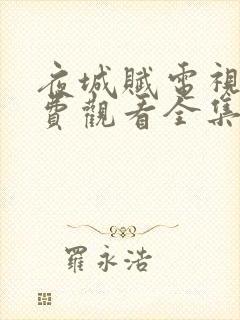 夜城賦電視
費觀看全集
羅永浩